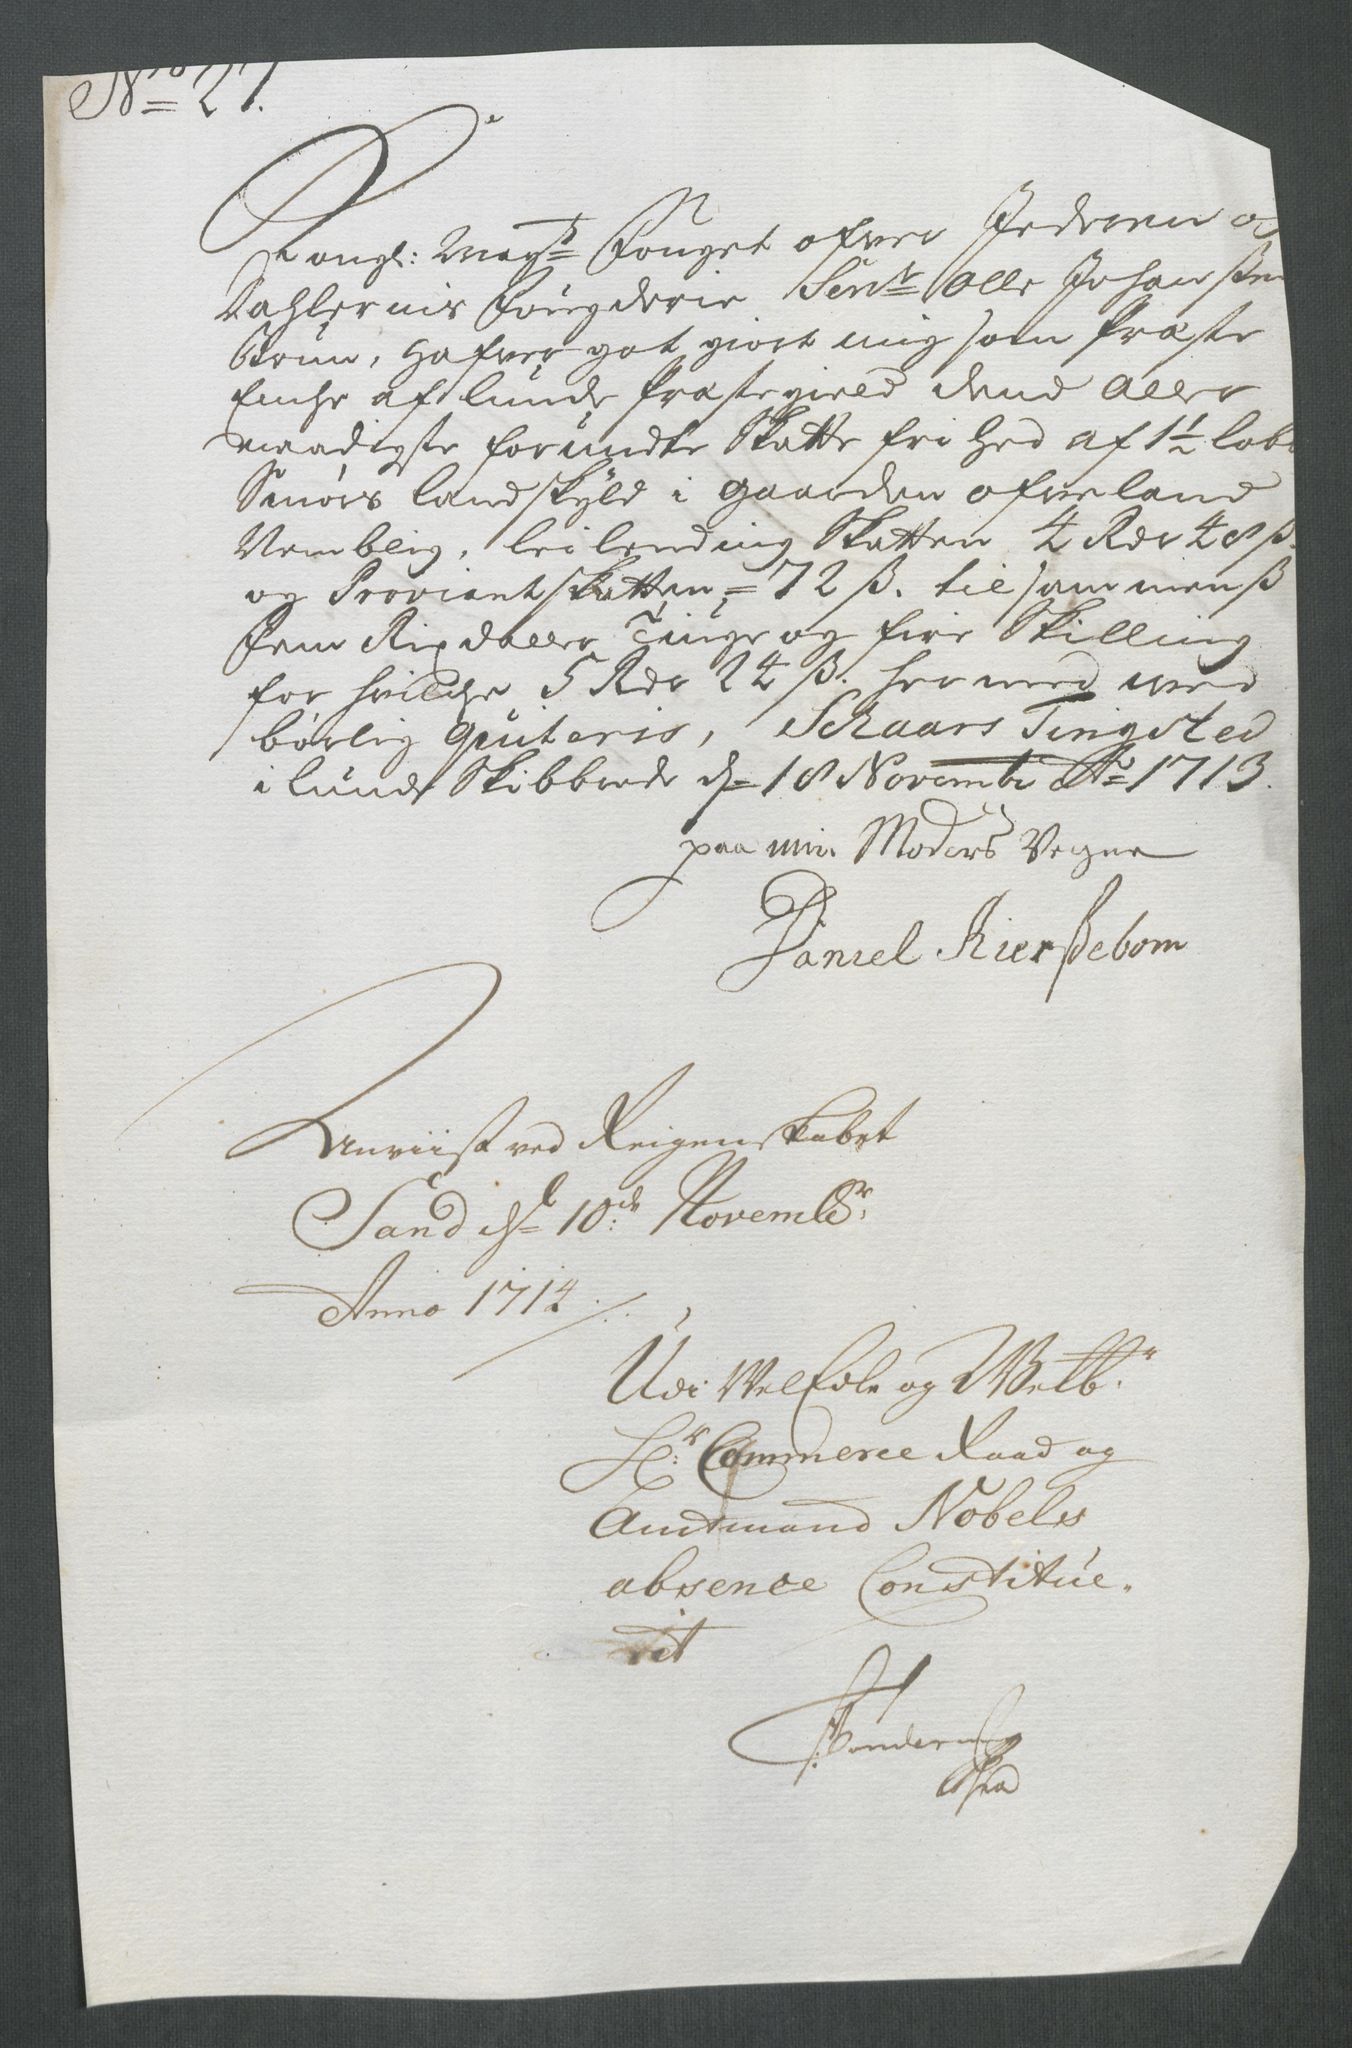 No 27.
Kongl: Mayts Fouget ofver Jederen og
Dahlernis Fougderie Senr Olle Johansen
Brun, hafver got giort mig som Præste
Enche af Lunde Præstegield dend Aller
naadigste forundte Skatte frihed af 1½ løb
Smørs Landskyld i gaarden ofveland
, leilending Skatten 4 Rdr 48 ß.
og Proviantskatten = 72 ß. tilsammenß
Fem Rixdaller Tiuge og fire Skilling
for hvilche 5 Rdr 24 ß. hermed med
børlig quiteris, Schaars Tingsted
i Lunde Skibbrede d= 18 Novembr Ao 1713.
paa min Moders Vegne
Daniel Kierßebom
Anviist ved Reigenskabet
Sand d= 10de Novembr.
Anno 1714
Udi WelEdle og Welb.r
Hr. Commerce Raad og
Amtmand Nobels
absence Constitue-
rit